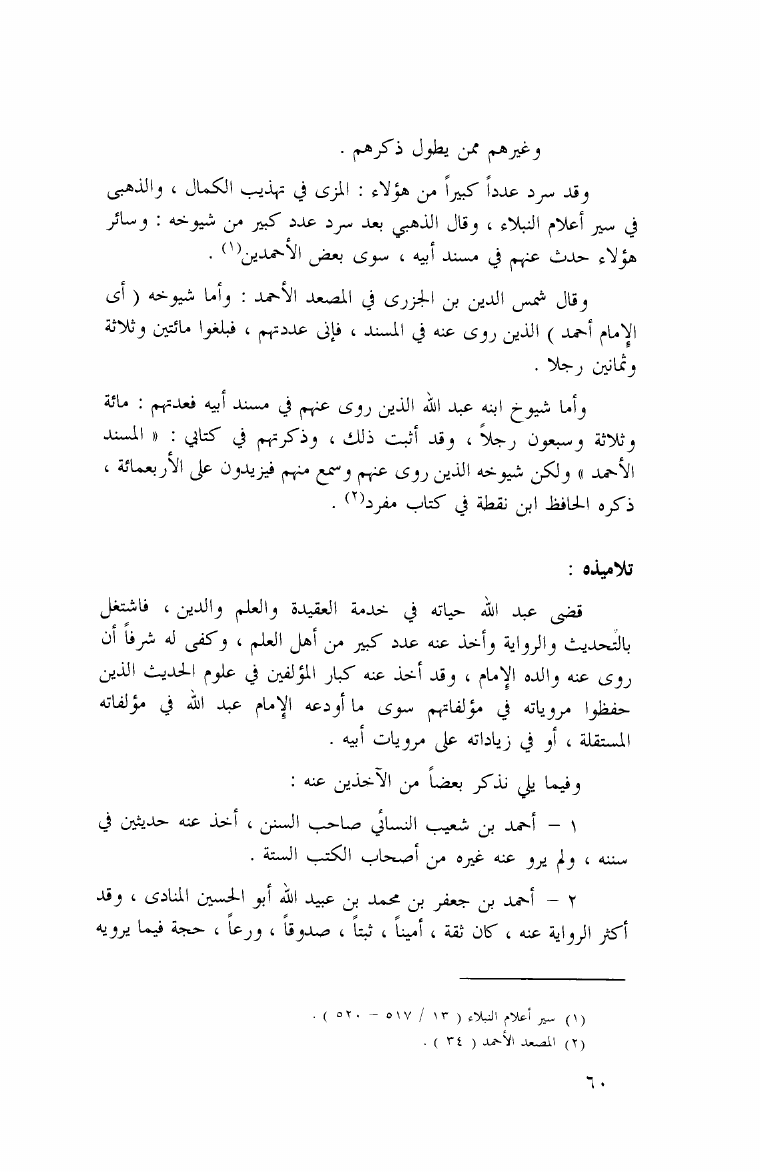 وغيرهم ممن يطول ذكرهم .
وقد سرد عدداً كبيراً من هؤلاء : المزى في تهذيب الكمال ، والذهبى
في سير أعلام النبلاء ، وقال الذهبي بعد سرد عدد كبير من شيوخه : وسائر
هؤلاء حدث عنهم في مسند أبيه ، سوى بعض الأحمدين(١) .
وقال شمس الدين بن الجزرى في المصعد الأحمد : وأما شيوخه ( أى
الإمام أحمد ) الذين روى عنه في المسند ، فإنى عددتهم ، فبلغوا مائتين وثلاثة
وثمانين رجلا .
وأما شيوخ ابنه عبد الله الذين روى عنهم في مسند أبيه فعدتهم : مائة
وثلاثة وسبعون رجلاً ، وقد أثبت ذلك ، وذكرتهم في كتابي : « المسند
الأحمد » ولكن شيوخه الذين روى عنهم وسمع منهم فيزيدون على الأربعمائة ،
ذكره الحافظ ابن نقطة في كتاب مفرد(٢) .
تلاميذه :
قضى عبد الله حياته في خدمة العقيدة والعلم والدين ، فاشتغل
بالتحديث والرواية وأخذ عنه عدد كبير من أهل العلم ، وكفى له شرفاً أن
روى عنه والده الإمام ، وقد أخذ عنه كبار المؤلفين في علوم الحديث الذين
حفظوا مروياته في مؤلفاتهم سوى ما أودعه الإمام عبد الله في مؤلفاته
المستقلة ، أو في زياداته على مرويات أبيه .
وفيما يلي نذكر بعضاً من الآخذين عنه :
١ – أحمد بن شعيب النسائي صاحب السنن ، أخذ عنه حديثين في
سننه ، ولم يرو عنه غيره من أصحاب الكتب الستة .
٢ – أحمد بن جعفر بن محمد بن عبيد الله أبو الحسين المنادى ، وقد
أكثر الرواية عنه ، كان ثقة ، أميناً ، ثبتاً ، صدوقاً ، ورعاً ، حجة فيما يرويه
(١) سير أعلام النبلاء ( ١٣ / ٥١٧ – ٥٢٠ ) .
(٢) المصعد الأحمد ( ٣٤ ) .
٦٠